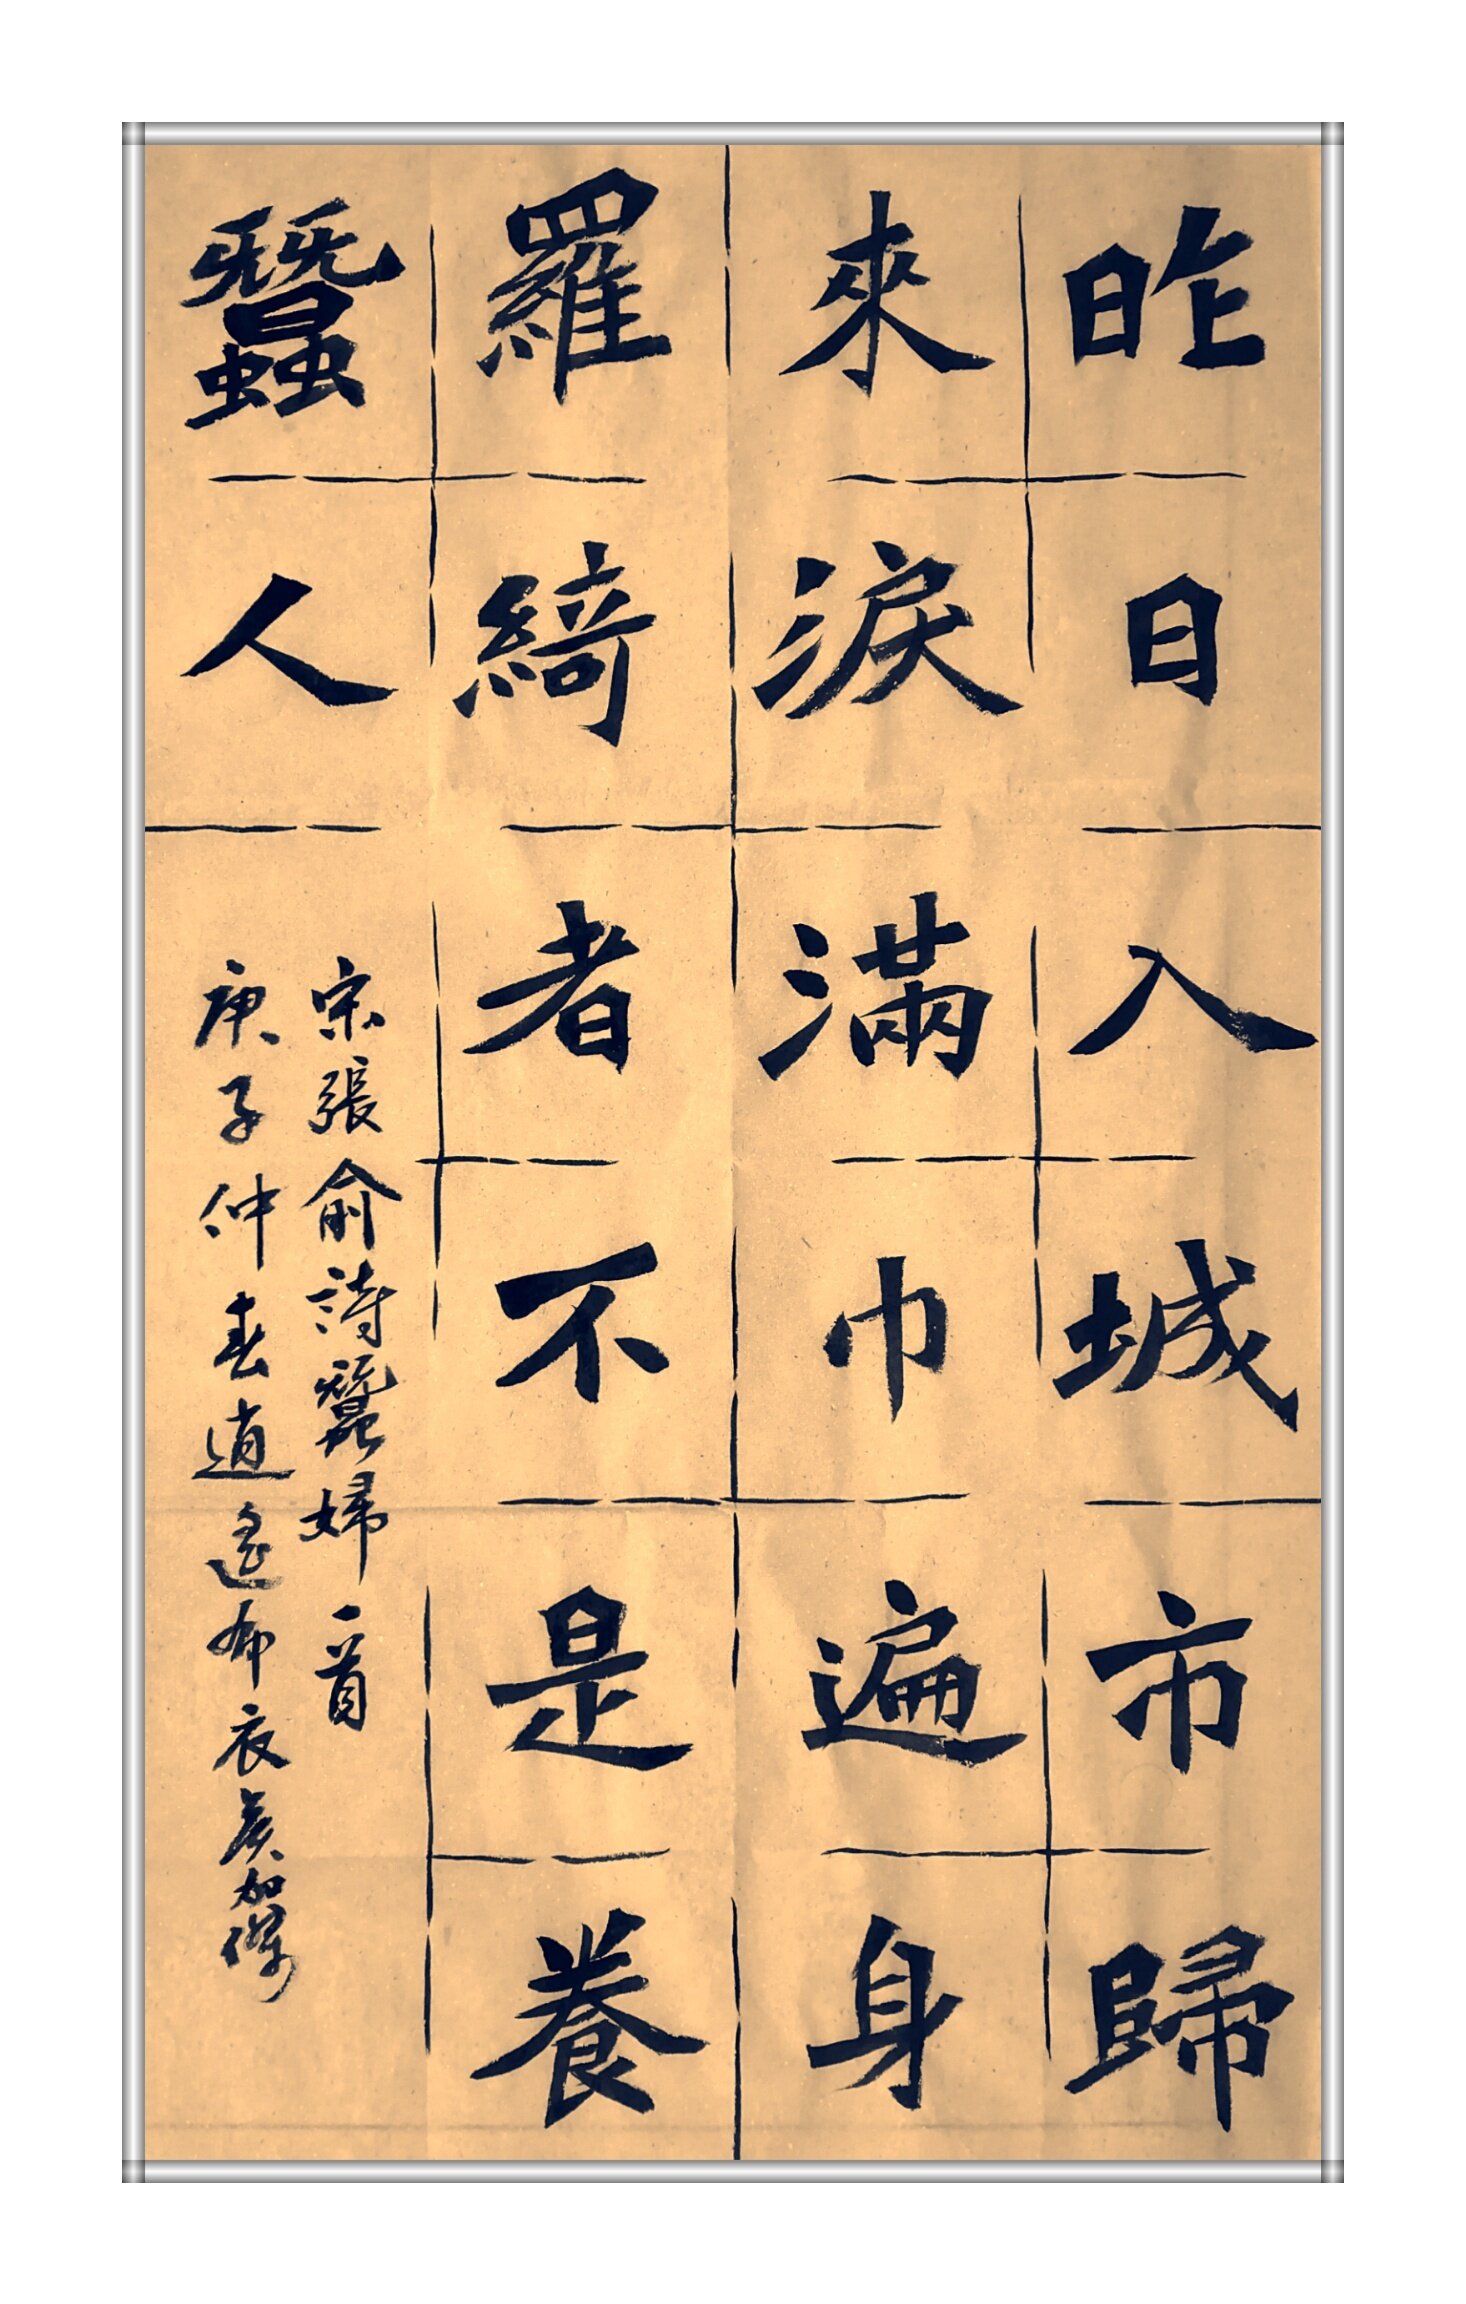 昨日入城市歸
來淚滿巾遍身
羅綺者不是養
蠶人
宋張俞詩蠶婦一首
庚子仲春逍遙布衣吳加保